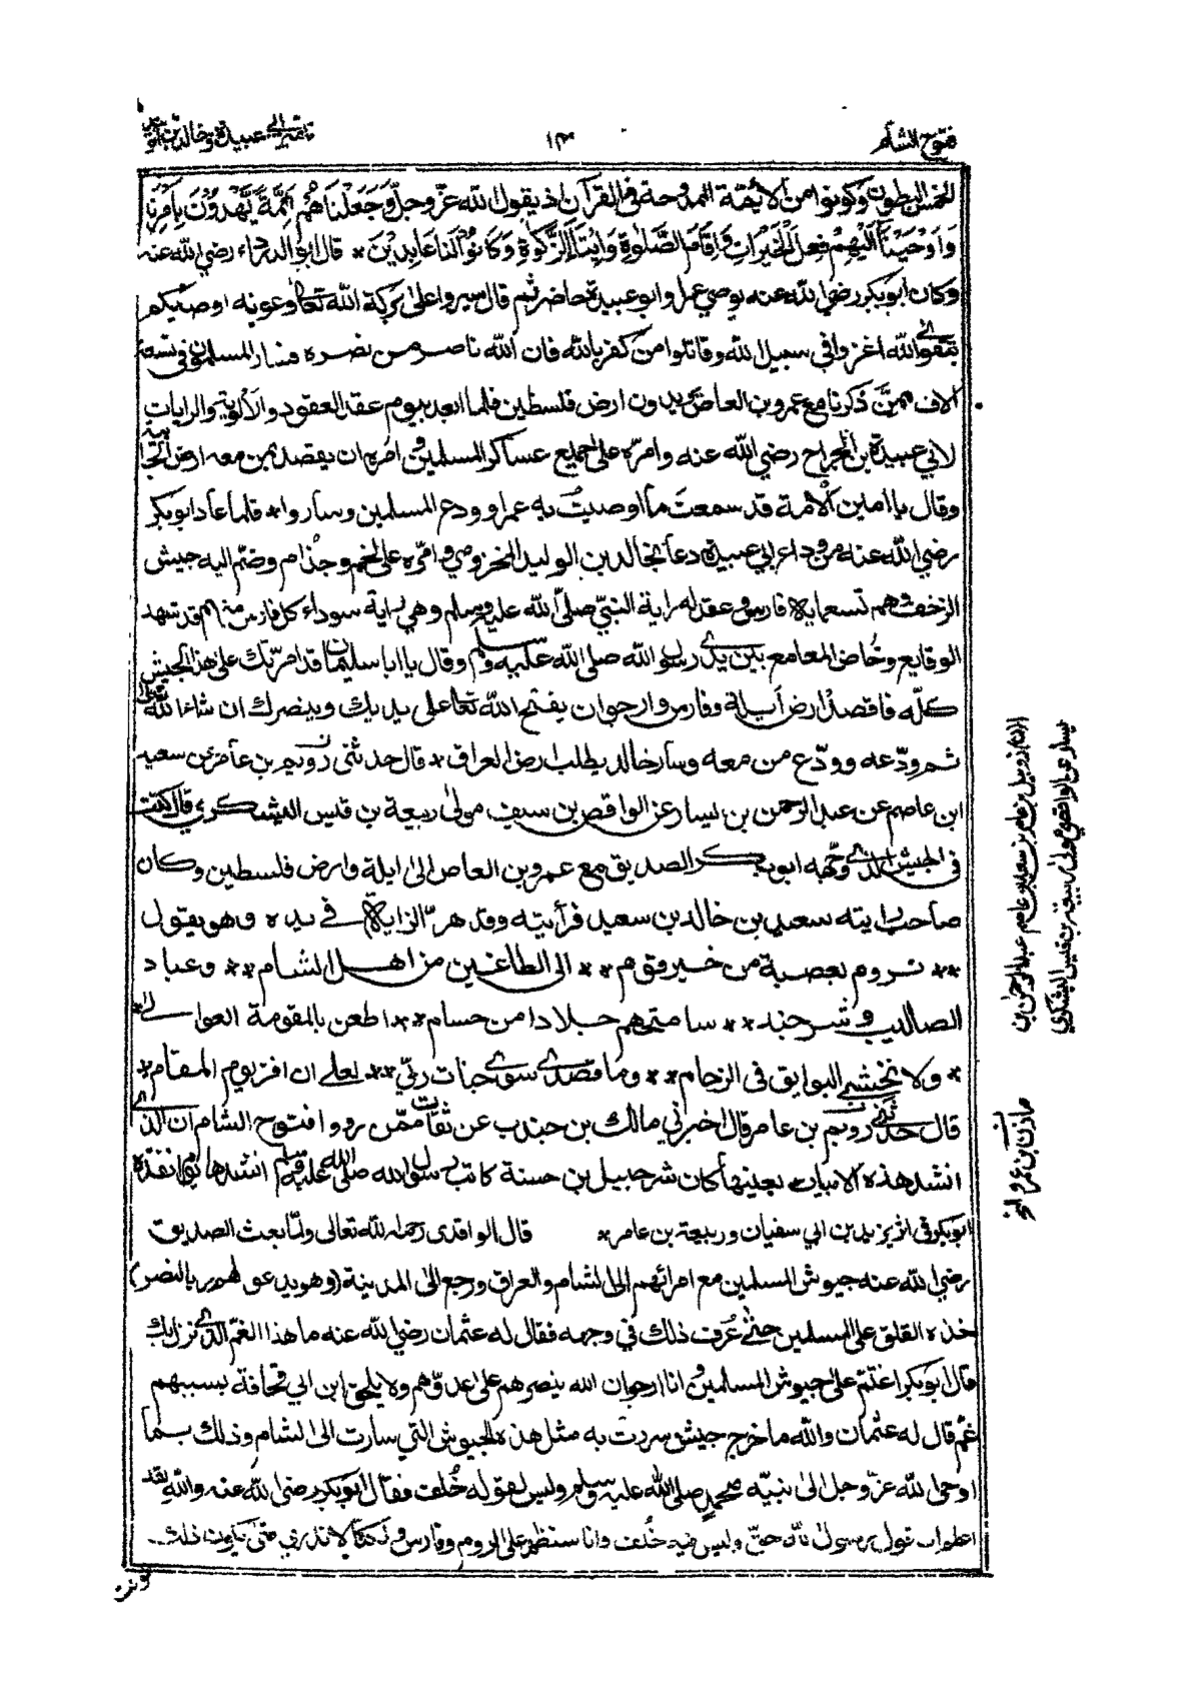 فتوح الشام
١٣
عبيدة وخالد بن
البطون وكونوا من الأئمة الممدوحة فى القرآن اذ يقول الله عزّ وجلّ وَجَعَلْنَاهُمْ اَئِمَّةً يَّهْدُوْنَ بِاَمْرِنَا
وَاَوْحَيْنَآ اِلَيْهِمْ فِعْلَ الْخَيْرَاتِ وَاِقَامَ الصَّلٰوةِ وَاِيْتَآءَ الزَّكٰوةِ وَكَانُوْا لَنَا عَابِدِيْنَ * قال ابو الدرداء رضي الله عنه
وكان ابو بكر رضي الله عنه يوصي عمرا وابو عبيدة حاضر ثم قال سيروا على بركة الله تعالى وعونه اوصيكم
بتقوى الله اغزوا فى سبيل الله وقاتلوا من كفر بالله فان الله ناصر من نصره فسار المسلمون فى تسعة
الاف ممّن ذكرنا مع عمرو بن العاص يريدون ارض فلسطين فلما ابعد بيوم عقد العقود والالوية والرايات
لابي عبيدة بن الجراح رضي الله عنه وامّره على جميع عساكر المسلمين وامره ان يقصد بمن معه ارض الجابية
وقال يا امين الأمة قد سمعت ما اوصيت به عمرا وودع المسلمين وساروا * فلما عاد ابو بكر
رضي الله عنه من وداع ابي عبيدة دعا بخالد بن الوليد المخزومي وامّره على لخم وجذام وضمّ اليه جيش
الزحف وهم تسعماية فارس وعقد له راية النبيّ صلّى الله عليه وسلم وهي راية سوداء كل فارس منهم قد شهد
الوقايع وخاض المعامع بين يدى رسول الله صلى الله عليه وسلم وقال يا ابا سليمان قد امّرتك على هذا الجيش
كلّه فاقصد ارض أيلة وفارس وارجو ان يفتح الله تعالى على يديك وينصرك ان شاء الله تعالى
ثم ودّعه وودّع من معه وسار خالد يطلب ارض العراق * قال حدثنى رويم بن عامر عن سعيد
ابن عاصم عن عبد الرحمن بن يسار عن الواقص بن سيف مولى ربيعة بن قيس اليشكري قال كنت
فى الجيش الذى وجّهه ابو بكر الصديق مع عمرو بن العاص الى ايلة وارض فلسطين وكان
صاحب رايته سعيد بن خالد بن سعيد فرأيته وقد هزّ الراية فى يده وهو يقول
** نروم بعصبة من خير قوم ** الى الطاغين من اهل الشام ** وعباد
الصاليب وشر جند ** سامتحهم جلادا من حسام ** اطعن بالمقومة العوالى *
* ولا نخشى البوايق فى الزحام ** وما قصدى سوى جنات ربّي ** لعلي ان افز يوم المقام *
قال حدثنى رويم بن عامر قال اخبرني مالك بن جندب عن ثقات ممّن رووا فتوح الشام ان الذى
انشد هذه الابيات بعينها كان شرحبيل بن حسنة كاتب رسول الله صلى الله عليه وسلم انشدها يوم انفذه
ابو بكر فى اثر يزيد بن ابي سفيان وربيعة بن عامر * قال الواقدى رحمه الله تعالى ولمّا بعث الصديق
رضي الله عنه جيوش المسلمين مع امرائهم الى الشام والعراق ورجع الى المدينة (وهو يدعو لهم بالنصر)
اخذه القلق على المسلمين حتى عُرِف ذلك في وجهه فقال له عثمان رضي الله عنه ما هذا الغمّ الذى نزل بك
قال ابو بكر اغتمّ على جيوش المسلمين وانا ارجو ان الله ينصرهم على اعدوّهم ولا يلحق ابن ابي قحافة بسببهم
غم قال له عثمان والله ما خرج جيش سررت به مثل هذه الجيوش التي سارت الى الشام وذلك بما
اوحى الله عزّ وجل الى نبيّه محمد صلى الله عليه وسلم وليس لقوله خُلف فقال ابو بكر رضي الله عنه والله لقد
اعلم ان قول رسول الله حقّ وليس فيه خُلف وانا سنظهر على الروم وفارس ولكنا لا ندري متى يكون ذلك
(ن) روبيل بن عامر بن سعيد بن عاصم عبد الرحمن بن
يسار عن الواضح مولى ربيعة بن قيس اليشكري
مازن بن عمرو